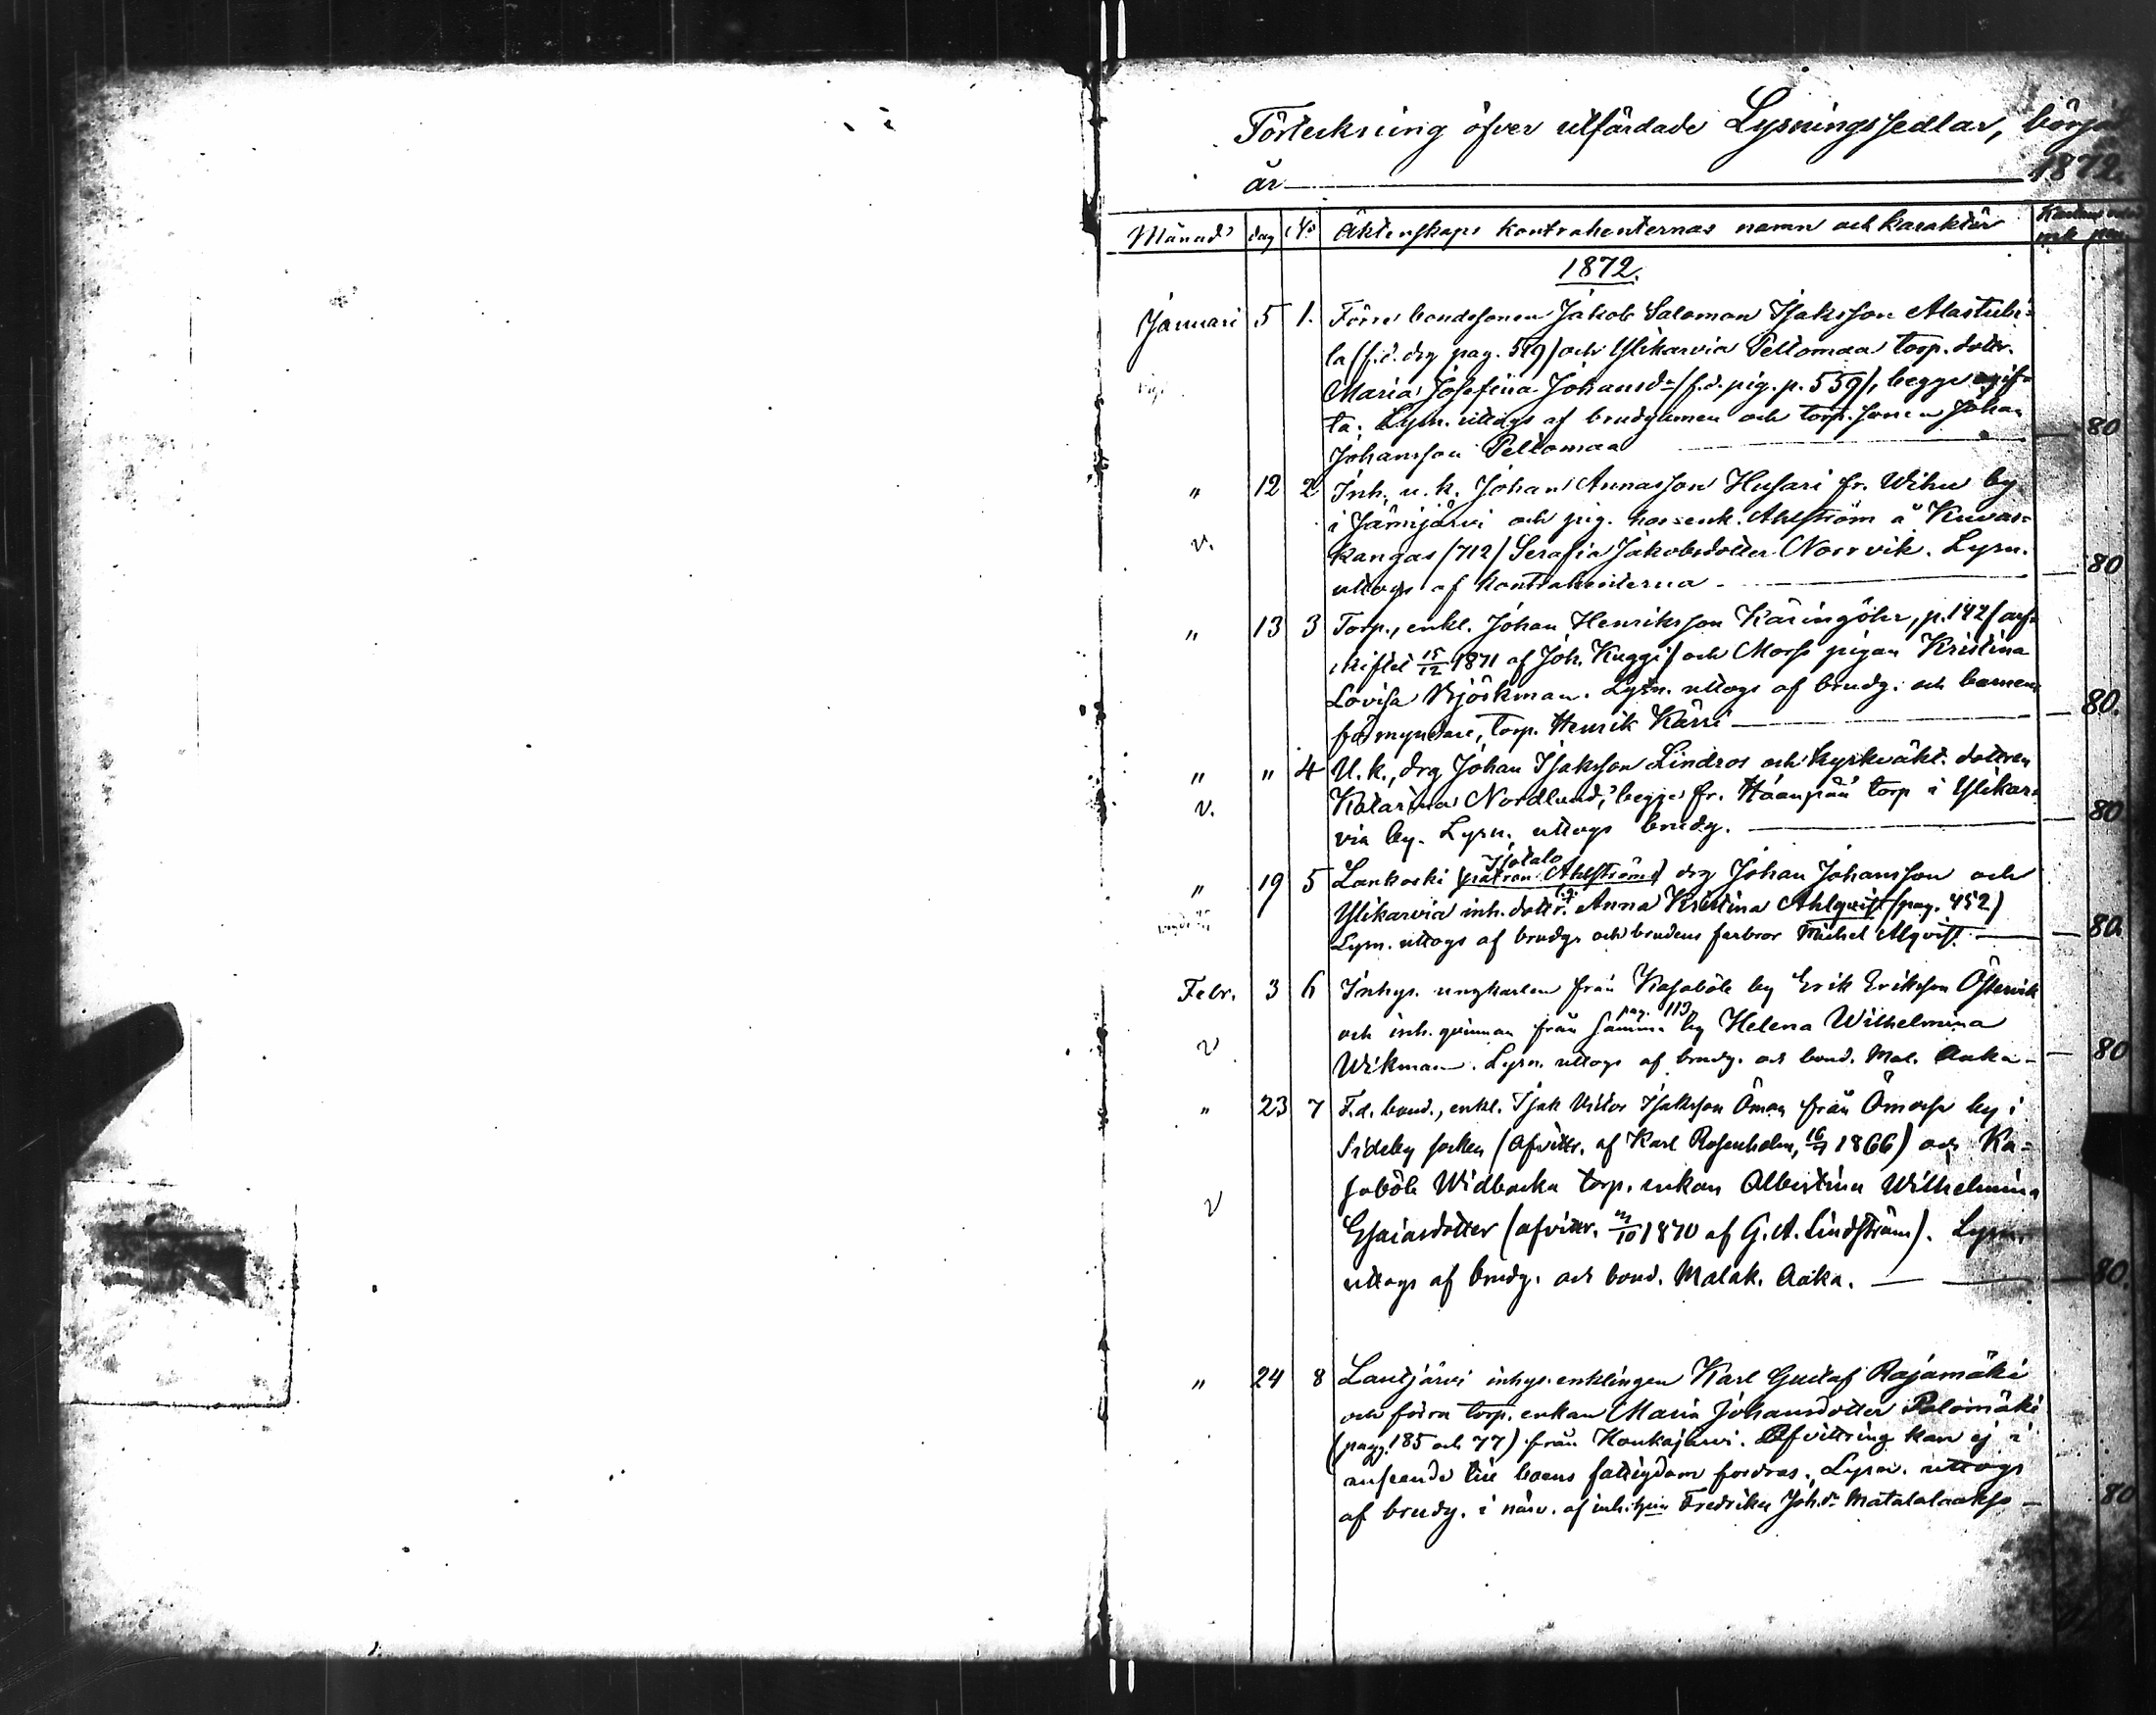 Förteckning öfver utfärdade Lysningssedlar, börjad
år 1872.
Månad dag No Äktenskaps kontrahenternas namn och karaktär mk
1872.
Januari 5 1. Förre bondesonen Jakob Salomon Isaksson Alastubi-
la (f.d. drg pag. 519) och Ylikarvia Peltomaa torp. dottr.
Maria Josefina Johansdr (f.d. pig. p. 559), begge ogif-
ta; Lysn. uttogs af brudgumen och torp. sonen Johan
Johansson Peltomaa — 80
" 12 2. Inh. u. k. Johan Annasson Husari fr. Wihu by
i Jämijärvi och pig. hos enk. Ahlström å Kuvas-
v. kangas (712) Serafia Jakobsdotter Norrvik. Lysn.
uttogs af kontrahenterna — 80
" 13 3 Torp., enkl. Johan Henriksson Käringöhr, p. 142 (arf-
skiftet 15/12 1871 af Joh. Kuggi) och Mosse pigan Kristina
Lovisa Björkman. Lysn. uttogs af brudg. och barnens
förmyndare, torp. Henrik Kärri — 80.
" " 4 U. k., drg Johan Isaksson Lindros och kyrkväkt. dottren
v. Katarina Nordlund, begge fr. Haanpää torp i Ylikar-
via by. Lysn. uttogs brudg. — 80
Isotalo
" 19 5 Lankoski (patron Ahlströms) drg Johan Johansson och
Ylikarvia inh. dottr. Anna Kristina Ahlqvist (pag. 452)
Lysn. uttogs af brudg. och brudens farbror Michel Alqvist — 80.
Febr. 3 6 Inhys. ungkarlen från Kasaböle by Erik Eriksson Östervik
pag. 113
v och inh. qvinnan från samma by Helena Wilhelmina
Wikman. Lysn. uttogs af brudg. och bond. Mal. Aaka — 80
" 23 7 F.d. bond., enkl. Isak Victor Isaksson Öman från Ömossa by i
Sideby socken (Afvittr. af Karl Rosenholm, 16/7 1866) och Ka-
v saböle Widbacka torp. enkan Albertina Wilhelmina
Esaiasdotter (afvittr. /10 1870 af G. A. Lindström). Lysn.
uttogs af brudg. och bond. Malak. Aaka. — 80.
" 24 8 Lautjärvi inhys. enklingen Karl Gustaf Rajamäki
och förra torp. enkan Maria Johansdotter Palomäki
(pagg. 185 och 77) från Honkajärvi. Afvittring kan ej i
anseende till boens fattigdom fordras. Lysn. uttogs
af brudg. i närv. af inh. Fredrika Joh.dr Matalalaakso — 80